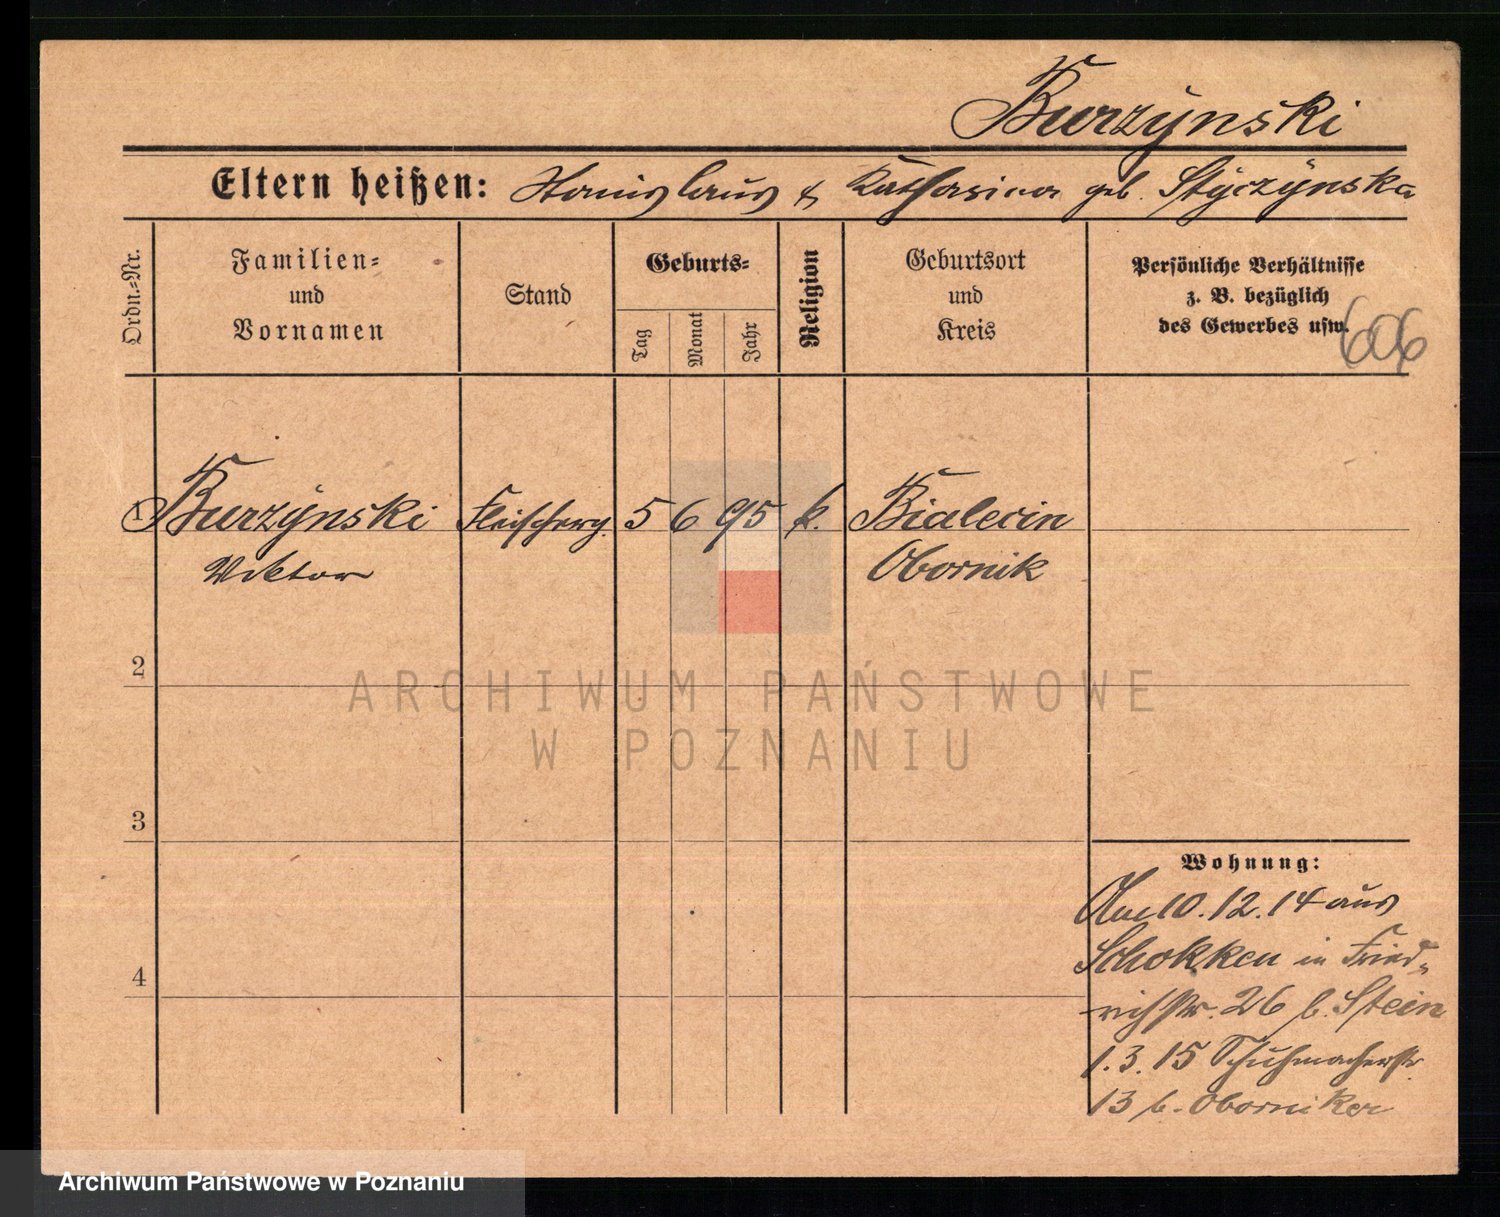 Burzÿnski
Eltern heißen: Stanislaus & Katharina geb. Stÿczÿnska
Ordn.-Nr.
Familien-
und
Vornamen
Stand
Geburts-
Tag
Monat
Jahr
Religion
Geburtsort
und
Kreis
Persönliche Verhältnisse
z. B. bezüglich
des Gewerbes usw.
606
1 Burzÿnski Fleischerg. 5 6 95 k. Bialecin
Viktor Obornik
2
ARCHIWUM PAŃSTWOWE
W POZNANIU
3
Wohnung:
Am 10.12.14 aus
Schokken in Fried-
4
richstr. 26 b. Stein
1.3.15 Schuhmacherstr
13 b. Oborniker
Archiwum Państwowe w Poznaniu